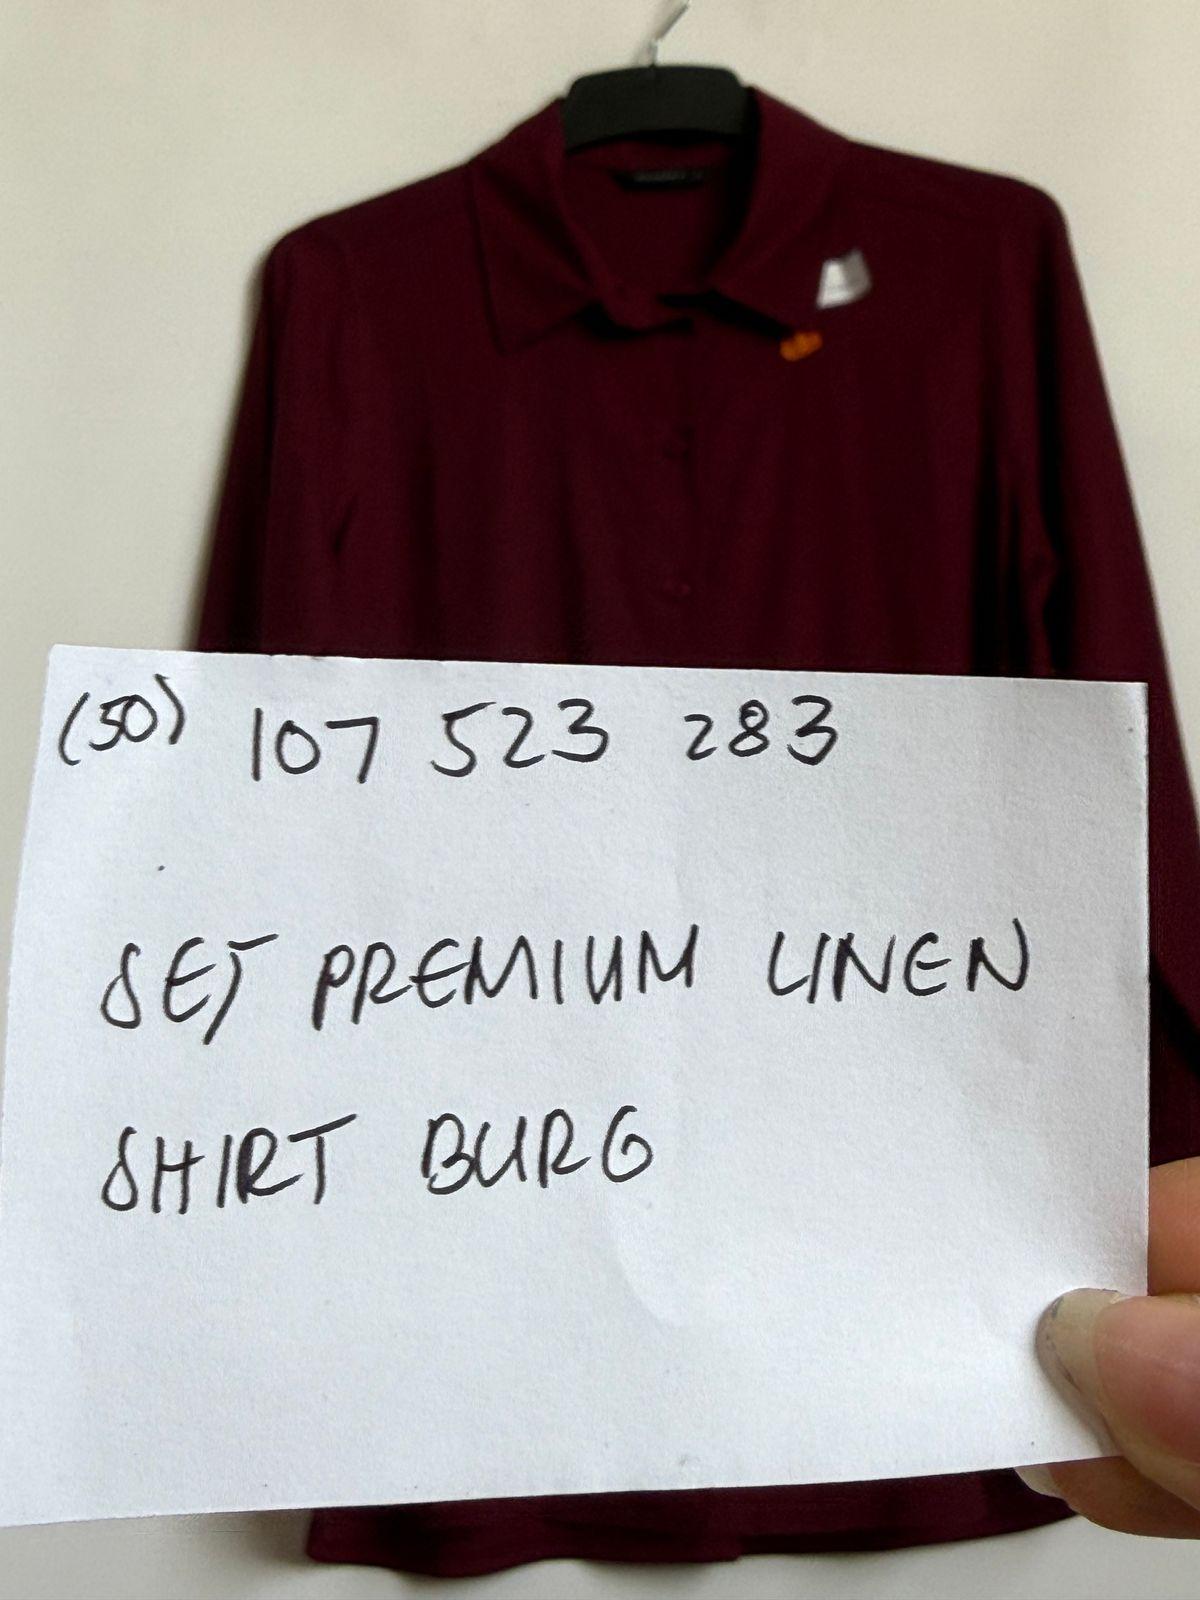 (50) 107 523 283
SET PREMIUM LINEN
SHIRT BURG